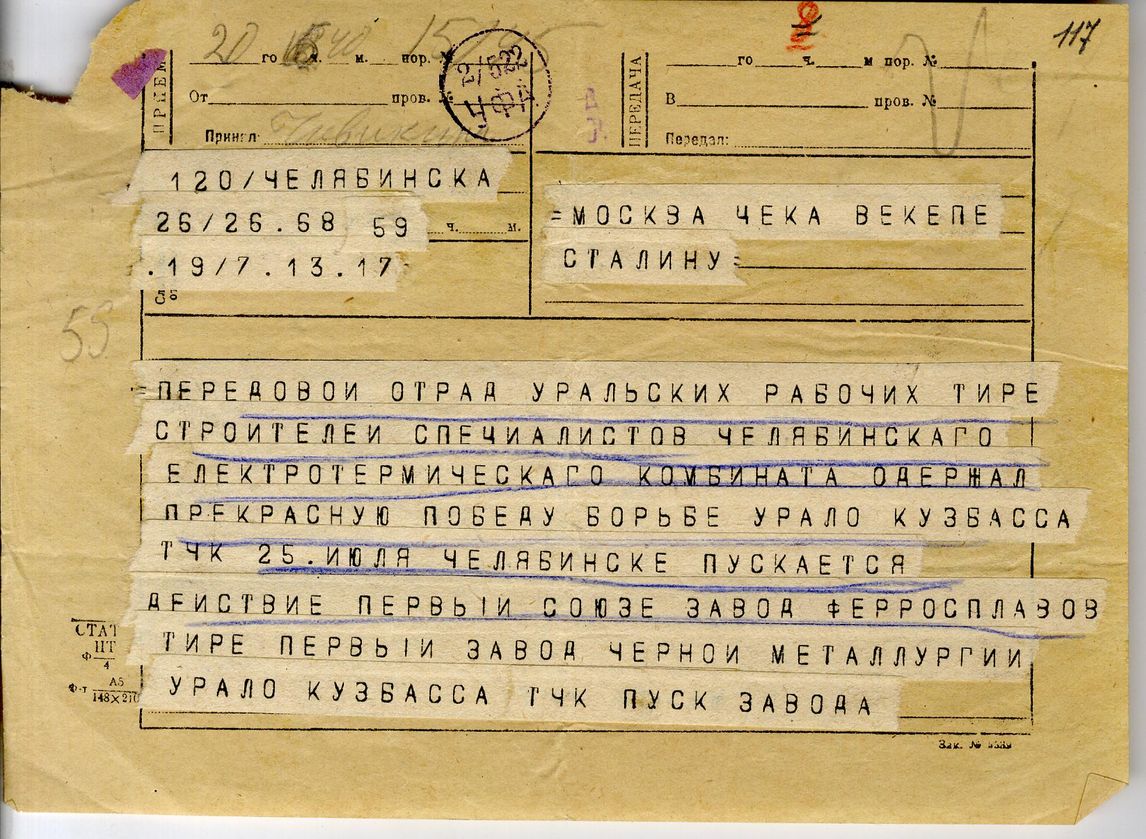 117
20 го ч. 40 м. пор. №
го ч. м пор. №
ПРИЕМ
От пров. №
ПЕРЕДАЧА
В пров. №
Принял
Передал:
120/ЧЕЛЯБИНСКА
26/26.68 59 ч. м.
.19/7.13.17
=МОСКВА ЧЕКА ВЕКЕПЕ
СТАЛИНУ=
=ПЕРЕДОВОИ ОТРАД УРАЛЬСКИХ РАБОЧИХ ТИРЕ
СТРОИТЕЛЕИ СПЕЦИАЛИСТОВ ЧЕЛЯБИНСКАГО
ЕЛЕКТРОТЕРМИЧЕСКАГО КОМБИНАТА ОДЕРЖАЛ
ПРЕКРАСНУЮ ПОБЕДУ БОРЬБЕ УРАЛО КУЗБАССА
ТЧК 25.ИЮЛЯ ЧЕЛЯБИНСКЕ ПУСКАЕТСЯ
ДЕИСТВИЕ ПЕРВЫИ СОЮЗЕ ЗАВОД ФЕРРОСПЛАВОВ
ТИРЕ ПЕРВЫИ ЗАВОД ЧЕРНОИ МЕТАЛЛУРГИИ
УРАЛО КУЗБАССА ТЧК ПУСК ЗАВОДА
55
СТАТ
ПТ
Ф 4
Ф-т А5
148×210
Зак. №